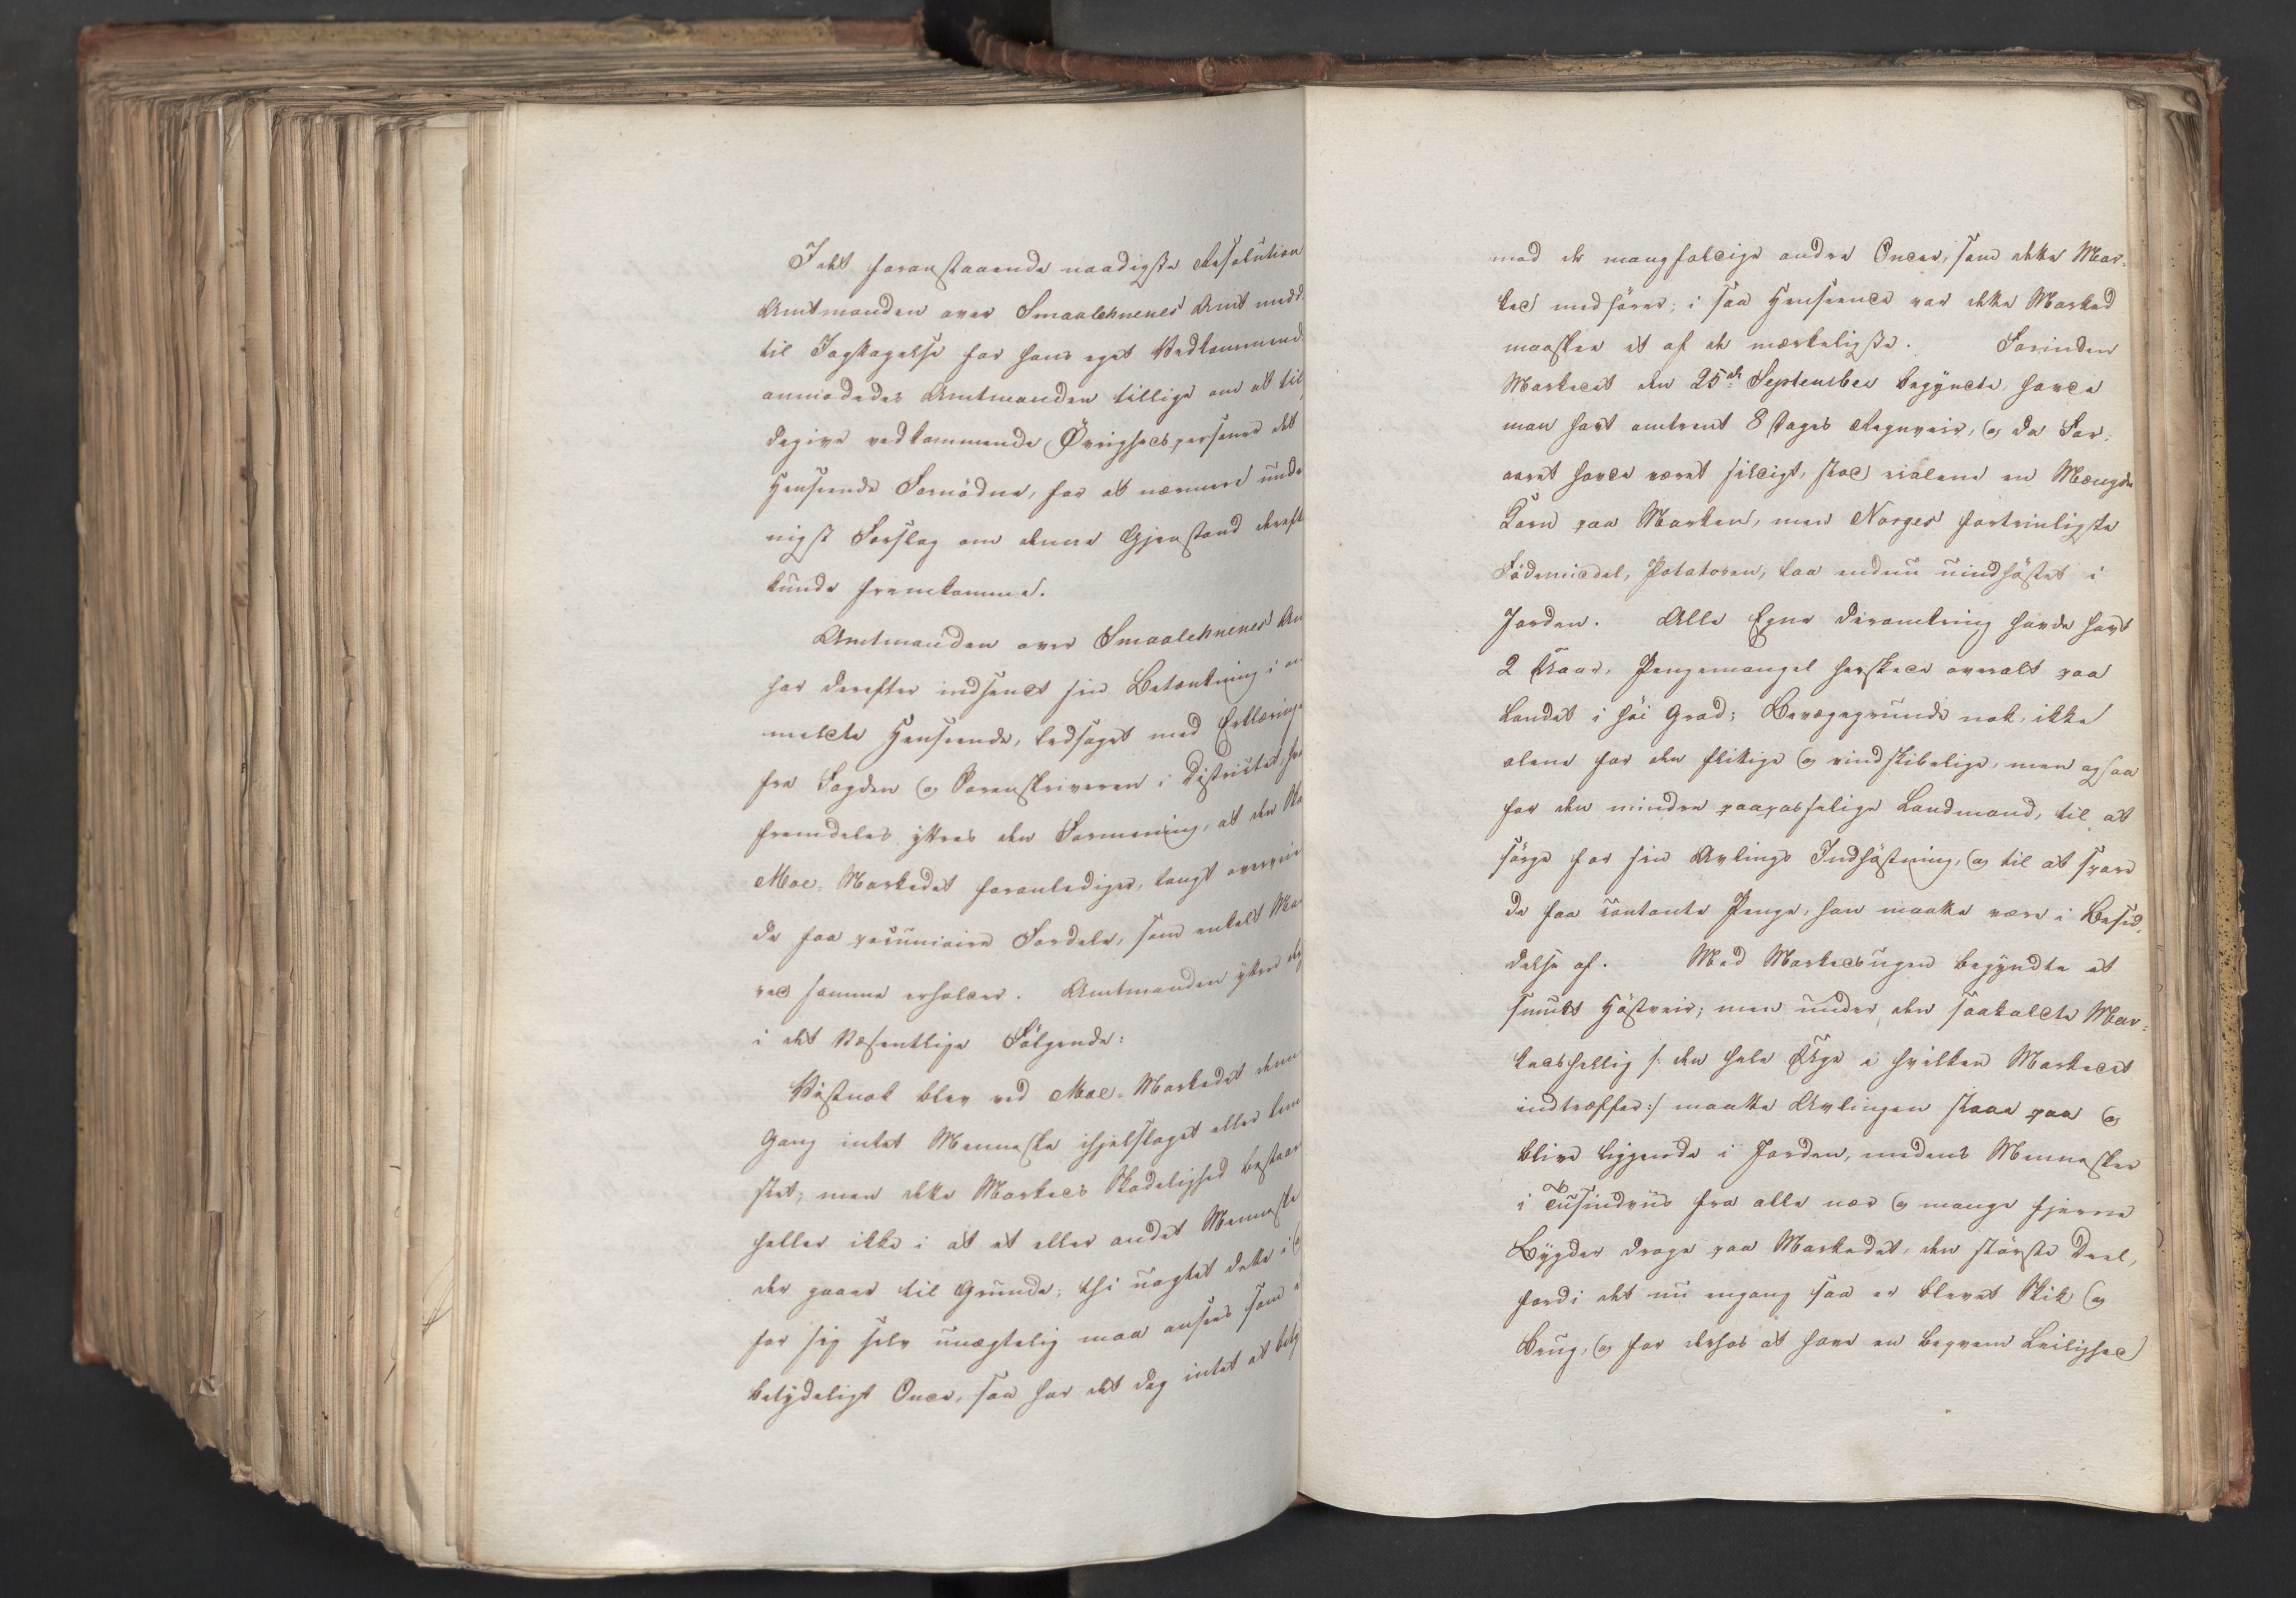 I det foranstaaende naadigste Resolution
Amtmanden over Smaalehnenes Amt medd
til Iagttagelse for hans eget Vedkommend
anmodedes Amtmanden tillige om at til
degive vedkommende Øvrighedspersoner det
Henseende Fornödne, for at nærmere unde
nigst Forslag om denne Gjenstand dereft
kunde fremkomme.
Amtmanden over Smaalehnenes Am
har derefter indsendt sin Betænkning i an
meldte Henseende, ledsaget med Erklæringe
fra Fogden og Sorenskriveren i Districtet, hv
fremdeles yttres den Formening, at den Ska
Moe-Markedet foranlediger, langt overvei
de faa pecuniaire Fordele, som enkelt Ma
ved samme erholder. Amtmanden yttrer de
i det Væsentlige Fölgende:
Vistnok blev ved Moe-Markedet denn
Gang intet Menneske ihjelslaget eller lem
stet; men dette Markeds Skadelighed bestaar
heller ikke i at et eller andet Menneske
der gaaer til Grunde; thi uagtet dette i og
for sig selv unægtelig maa ansees som e
betydeligt Onde, saa har det dog intet at bety
mod de mangfoldige andre Onder, som dette Mar-
ked medförer; i saa Henseende var dette Marked
maaskee et af de mærkeligste. Forinden
Markedet den 25de September begyndte, havde
man havt omtrent 8 Dages Regnveir, og da For-
aaret havde været sildigt, stod endnu en Mængde
Korn paa Marken, men Norges fortrinligste
Födemiddel, Potatosen, laa endnu uindhöstet i
Jorden. Alle Egne deromkring havde havt
2 Uaar. Pengemangel herskede overalt paa
Landet i höi Grad; Bevæggrunde nok, ikke
alene for den flittige og vindskibelige, men ogsaa
for den mindre paapasselige Landmand, til at
sörge for sin Avlings Indhöstning, og til at spare
de faa contante Penge, han maatte være i Besid-
delse af. Med Markedsugen begyndte et
smukt Höstveir; men under den saakaldte Mar-
kedshellig /: den hele Uge i hvilken Markedet
indtræffer :/ maatte Avlingen staae paa og
blive liggende i Jorden, medens Mennesker
i Tusindviis fra alle nær og mange fjerne
Bygder droge paa Markedet, den störste Deel,
fordi det nu engang saa er blevet Skik og
Brug, og for derhos at have en beqvem Leilighed